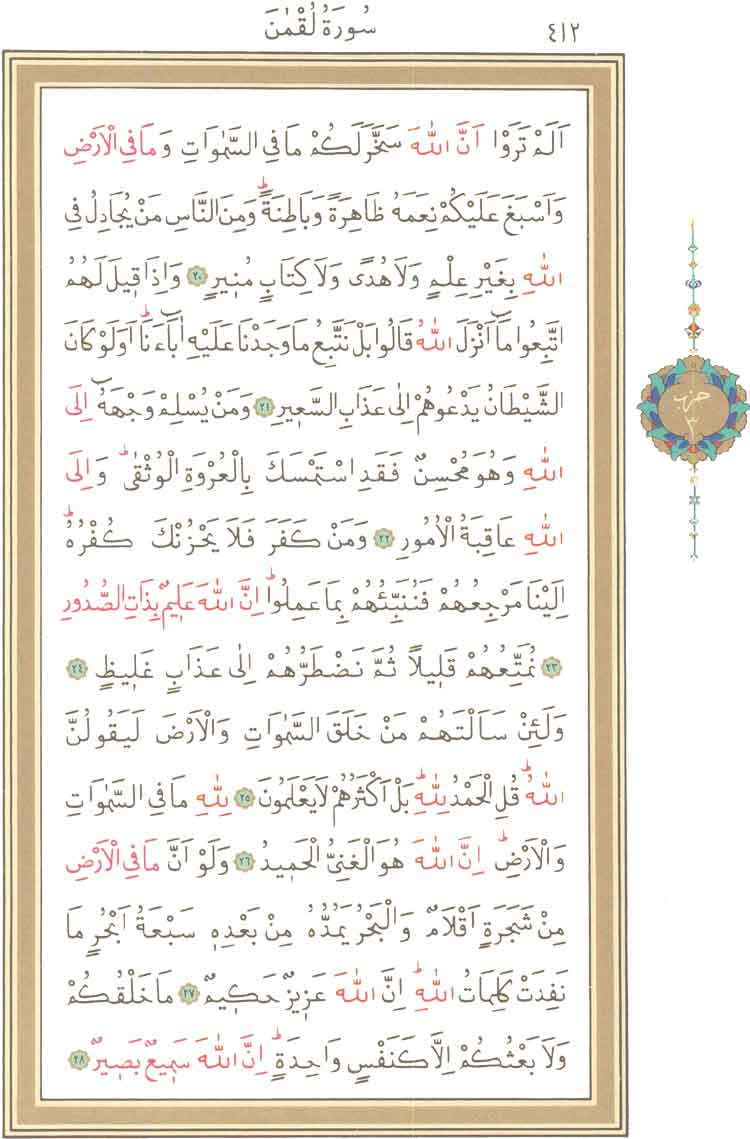 ٤١٢
سُورَةُ لُقْمٰنَ
اَلَمْ تَرَوْا اَنَّ اللّٰهَ سَخَّرَ لَكُمْ مَا فِي السَّمٰوَاتِ وَمَا فِي الْاَرْضِ
وَاَسْبَغَ عَلَيْكُمْ نِعَمَهُ ظَاهِرَةً وَبَاطِنَةًۜ وَمِنَ النَّاسِ مَنْ يُجَادِلُ فِي
اللّٰهِ بِغَيْرِ عِلْمٍ وَلَا هُدًى وَلَا كِتَابٍ مُنٖيرٍ ﴿٢٠﴾ وَاِذَا قٖيلَ لَهُمُ
اتَّبِعُوا مَٓا اَنْزَلَ اللّٰهُ قَالُوا بَلْ نَتَّبِعُ مَا وَجَدْنَا عَلَيْهِ اٰبَٓاءَنَاۜ اَوَلَوْ كَانَ
الشَّيْطَانُ يَدْعُوهُمْ اِلٰى عَذَابِ السَّعٖيرِ ﴿٢١﴾ وَمَنْ يُسْلِمْ وَجْهَهُٓ اِلَى
اللّٰهِ وَهُوَ مُحْسِنٌ فَقَدِ اسْتَمْسَكَ بِالْعُرْوَةِ الْوُثْقٰىۜ وَاِلَى
اللّٰهِ عَاقِبَةُ الْاُمُورِ ﴿٢٢﴾ وَمَنْ كَفَرَ فَلَا يَحْزُنْكَ كُفْرُهُۜ
اِلَيْنَا مَرْجِعُهُمْ فَنُنَبِّئُهُمْ بِمَا عَمِلُواۜ اِنَّ اللّٰهَ عَلٖيمٌ بِذَاتِ الصُّدُورِ
﴿٢٣﴾ نُمَتِّعُهُمْ قَلٖيلًا ثُمَّ نَضْطَرُّهُمْ اِلٰى عَذَابٍ غَلٖيظٍ ﴿٢٤﴾
وَلَئِنْ سَاَلْتَهُمْ مَنْ خَلَقَ السَّمٰوَاتِ وَالْاَرْضَ لَيَقُولُنَّ
اللّٰهُۜ قُلِ الْحَمْدُ لِلّٰهِۜ بَلْ اَكْثَرُهُمْ لَا يَعْلَمُونَ ﴿٢٥﴾ لِلّٰهِ مَا فِي السَّمٰوَاتِ
وَالْاَرْضِۜ اِنَّ اللّٰهَ هُوَ الْغَنِيُّ الْحَمٖيدُ ﴿٢٦﴾ وَلَوْ اَنَّ مَا فِي الْاَرْضِ
مِنْ شَجَرَةٍ اَقْلَامٌ وَالْبَحْرُ يَمُدُّهُ مِنْ بَعْدِهٖ سَبْعَةُ اَبْحُرٍ مَا
نَفِدَتْ كَلِمَاتُ اللّٰهِۜ اِنَّ اللّٰهَ عَزٖيزٌ حَكٖيمٌ ﴿٢٧﴾ مَا خَلْقُكُمْ
وَلَا بَعْثُكُمْ اِلَّا كَنَفْسٍ وَاحِدَةٍۜ اِنَّ اللّٰهَ سَمٖيعٌ بَصٖيرٌ ﴿٢٨﴾
حزب
٣